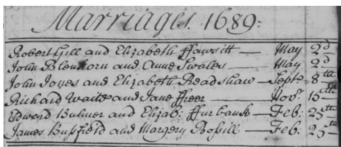 Marriages 1689:
Robert Gill and Elizabeth ffawsitt — May 2d
John Blenkorn and Anne Swales — May 2d
John Joyes and Elizabeth Readshaw — Septr. 8th
Richard Waite and Jane ffeer — Novr. 15th
Edward Bulmer and Elizab: ffurbank — Feb: 25th
James Buffield and Margery Pophill — Feb: 25th